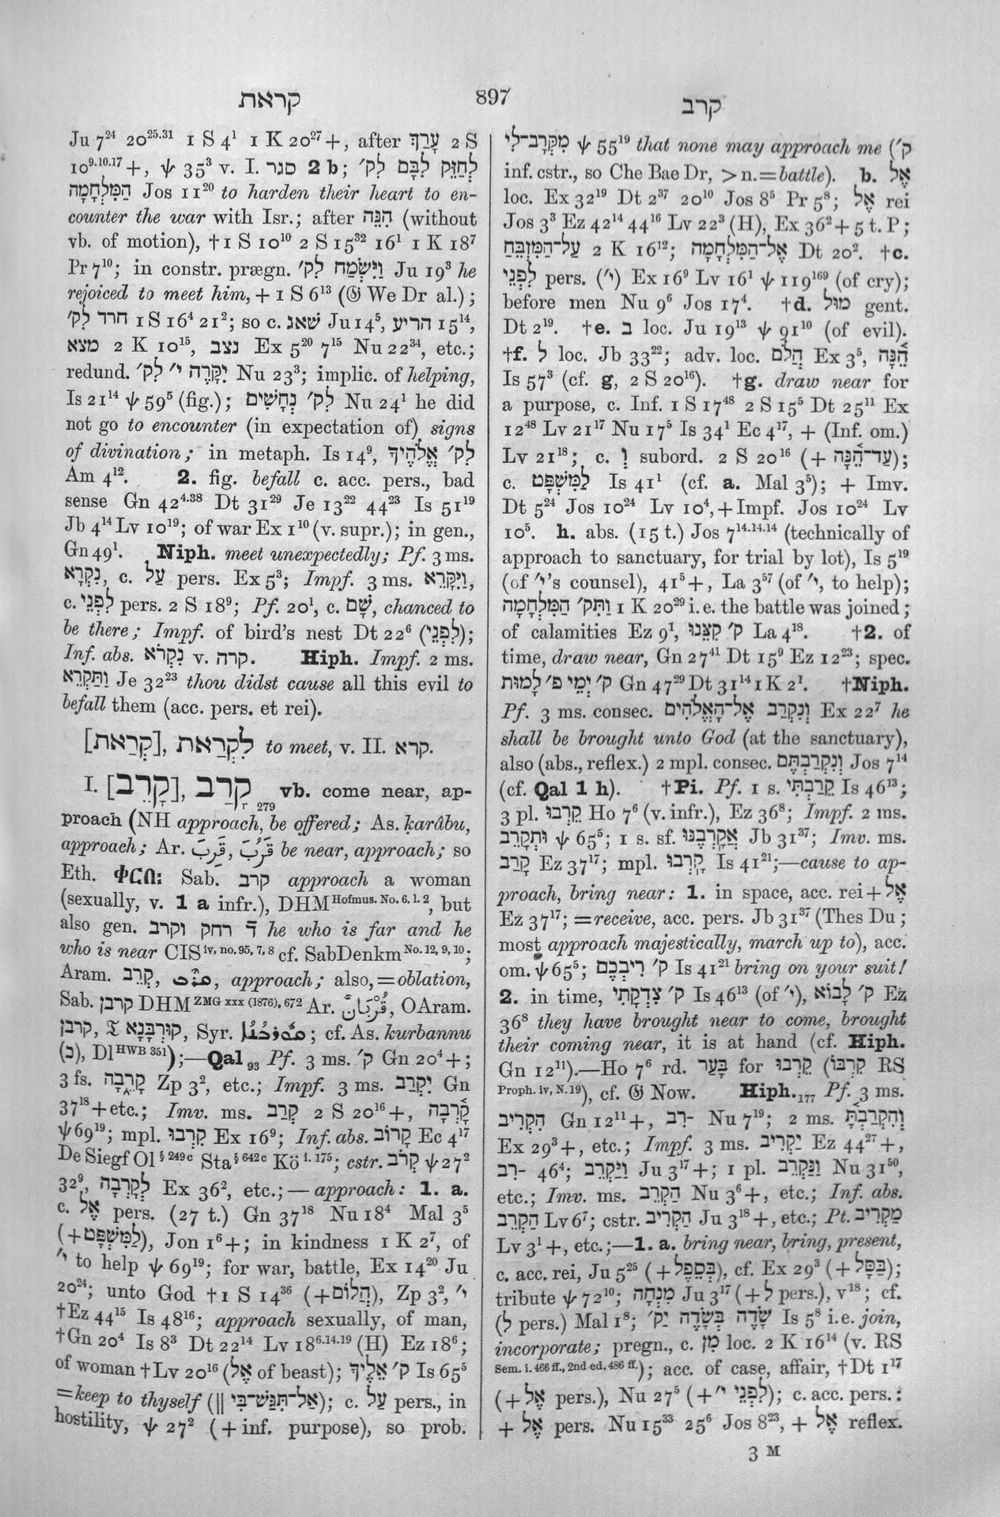 קראת
897
קרב
Ju 7²⁴ 20²⁵·³¹ 1 S 4¹ 1 K 20²⁷ +, after עָרַךְ 2 S
10⁹·¹⁰·¹⁷ +, ψ 35³ v. I. סגר 2 b; לְחַזֵּק לִבָּם לִק׳
הַמִּלְחָמָה Jos 11²⁰ to harden their heart to en-
counter the war with Isr.; after הִנֵּה (without
vb. of motion), †1 S 10¹⁰ 2 S 15³² 16¹ 1 K 18⁷
Pr 7¹⁰; in constr. prægn. וַיִּשְׂמַח לִק׳ Ju 19³ he
rejoiced to meet him, + 1 S 6¹³ (𝔊 We Dr al.);
חרד לִק׳ 1 S 16⁴ 21²; so c. שׁאג Ju 14⁵, הריע 15¹⁴,
מצא 2 K 10¹⁵, נצב Ex 5²⁰ 7¹⁵ Nu 22³⁴, etc.;
redund. יִקָּרֶה י׳ לִק׳ Nu 23³; implic. of helping,
Is 21¹⁴ ψ 59⁵ (fig.); לִק׳ נְחָשִׁים Nu 24¹ he did
not go to encounter (in expectation of) signs
of divination; in metaph. Is 14⁹, לִק׳ אֱלֹהֶיךָ
Am 4¹². 2. fig. befall c. acc. pers., bad
sense Gn 42⁴·³⁸ Dt 31²⁹ Je 13²² 44²³ Is 51¹⁹
Jb 4¹⁴ Lv 10¹⁹; of war Ex 1¹⁰ (v. supr.); in gen.,
Gn 49¹. Niph. meet unexpectedly; Pf. 3 ms.
נִקְרָא, c. עַל pers. Ex 5³; Impf. 3 ms. וַיִּקָּרֵא,
c. לִפְנֵי pers. 2 S 18⁹; Pf. 20¹, c. שָׁם, chanced to
be there; Impf. of bird's nest Dt 22⁶ (לִפְנֵי);
Inf. abs. נִקְרֹא v. קרה. Hiph. Impf. 2 ms.
וַתַּקְרֵא Je 32²³ thou didst cause all this evil to
befall them (acc. pers. et rei).
[קִרְאָת], לִקְרַאת to meet, v. II. קרא.
I. [קָרֵב], קָרַב 279 vb. come near, ap-
proach (NH approach, be offered; As. ḳarâbu,
approach; Ar. قَرِبَ, قَرُبَ be near, approach; so
Eth. ቀርበ: Sab. קרב approach a woman
(sexually, v. 1 a infr.), DHM Hofmus. No. 6, 1. 2, but
also gen. ד רחק וקרב he who is far and he
who is near CIS iv, no. 95, 7, 8 cf. SabDenkm No. 12, 9, 10;
Aram. קְרֵב, ܩܪܶܒ, approach; also, = oblation,
Sab. קרבן DHM ZMG xxx (1876), 672 Ar. قُرْبَانٌ, OAram.
קרבן, 𝔗 קוּרְבָּנָא, Syr. ܩܘܪܒܢܐ; cf. As. ḳurbannu
(כ), Dl HWB 351);—Qal 93 Pf. 3 ms. ק׳ Gn 20⁴ +;
3 fs. קָרְבָה Zp 3², etc.; Impf. 3 ms. יִקְרַב Gn
37¹⁸ + etc.; Imv. ms. קְרַב 2 S 20¹⁶ +, קָרְבָה
ψ 69¹⁹; mpl. קִרְבוּ Ex 16⁹; Inf. abs. קָרוֹב Ec 4¹⁷
De Siegf Ol § 249 c Sta § 642 c Kö i. 175; cstr. קְרֹב ψ 27²
32⁹, לְקָרְבָה Ex 36², etc.;— approach: 1. a.
c. אֶל pers. (27 t.) Gn 37¹⁸ Nu 18⁴ Mal 3⁵
(+ לַמִּשְׁפָּט), Jon 1⁶ +; in kindness 1 K 2⁷, of
י׳ to help ψ 69¹⁹; for war, battle, Ex 14²⁰ Ju
20²⁴; unto God †1 S 14³⁶ (+ הֲלוֹם), Zp 3², י׳
†Ez 44¹⁵ Is 48¹⁶; approach sexually, of man,
†Gn 20⁴ Is 8³ Dt 22¹⁴ Lv 18⁶·¹⁴·¹⁹ (H) Ez 18⁶;
of woman †Lv 20¹⁶ (אֶל of beast); ק׳ אֵלֶיךָ Is 65⁵
= keep to thyself (‖ אַל־תִּגַּשׁ־בִּי); c. עַל pers., in
hostility, ψ 27² (+ inf. purpose), so prob.
מִקֲּרָב־לִי ψ 55¹⁹ that none may approach me (ק׳
inf. cstr., so Che Bae Dr, > n. = battle). b. אֶל
loc. Ex 32¹⁹ Dt 2³⁷ 20¹⁰ Jos 8⁵ Pr 5⁸; אֶל rei
Jos 3³ Ez 42¹⁴ 44¹⁶ Lv 22³ (H), Ex 36² + 5 t. P;
עַל־הַמִּזְבֵּחַ 2 K 16¹²; אֶל־הַמִּלְחָמָה Dt 20². †c.
לִפְנֵי pers. (י׳) Ex 16⁹ Lv 16¹ ψ 119¹⁶⁹ (of cry);
before men Nu 9⁶ Jos 17⁴. †d. מוּל gent.
Dt 2¹⁹. †e. בְּ loc. Ju 19¹³ ψ 91¹⁰ (of evil).
†f. לְ loc. Jb 33²²; adv. loc. הֲלֹם Ex 3⁵, הֵנָּה
Is 57³ (cf. g, 2 S 20¹⁶). †g. draw near for
a purpose, c. Inf. 1 S 17⁴⁸ 2 S 15⁵ Dt 25¹¹ Ex
12⁴⁸ Lv 21¹⁷ Nu 17⁵ Is 34¹ Ec 4¹⁷, + (Inf. om.)
Lv 21¹⁸; c. וְ subord. 2 S 20¹⁶ (+ עַד־הֵנָּה);
c. לַמִּשְׁפָּט Is 41¹ (cf. a. Mal 3⁵); + Imv.
Dt 5²⁴ Jos 10²⁴ Lv 10⁴, + Impf. Jos 10²⁴ Lv
10⁵. h. abs. (15 t.) Jos 7¹⁴·¹⁴·¹⁴ (technically of
approach to sanctuary, for trial by lot), Is 5¹⁹
(of י׳'s counsel), 41⁵ +, La 3⁵⁷ (of י׳, to help);
וַתִּק׳ הַמִּלְחָמָה 1 K 20²⁹ i. e. the battle was joined;
of calamities Ez 9¹, ק׳ קִצֵּנוּ La 4¹⁸. †2. of
time, draw near, Gn 27⁴¹ Dt 15⁹ Ez 12²³; spec.
ק׳ יְמֵי פ׳ לָמוּת Gn 47²⁹ Dt 31¹⁴ 1 K 2¹. †Niph.
Pf. 3 ms. consec. וְנִקְרַב אֶל־הָאֱלֹהִים Ex 22⁷ he
shall be brought unto God (at the sanctuary),
also (abs., reflex.) 2 mpl. consec. וְנִקְרַבְתֶּם Jos 7¹⁴
(cf. Qal 1 h). †Pi. Pf. 1 s. קֵרַבְתִּי Is 46¹³;
3 pl. קֵרְבוּ Ho 7⁶ (v. infr.), Ez 36⁸; Impf. 2 ms.
וּתְקָרֵב ψ 65⁵; 1 s. sf. אֲקָרְבֶנּוּ Jb 31³⁷; Imv. ms.
קָרַב Ez 37¹⁷; mpl. קָרְבוּ Is 41²¹;—cause to ap-
proach, bring near: 1. in space, acc. rei + אֶל
Ez 37¹⁷; = receive, acc. pers. Jb 31³⁷ (Thes Du;
most approach majestically, march up to), acc.
om. ψ 65⁵; ק׳ רִיבְכֶם Is 41²¹ bring on your suit!
2. in time, ק׳ צִדְקָתִי Is 46¹³ (of י׳), ק׳ לָבוֹא Ez
36⁸ they have brought near to come, brought
their coming near, it is at hand (cf. Hiph.
Gn 12¹¹).—Ho 7⁶ rd. בָּעַר for קֵרְבוּ (קִרְבּוֹ RS
Proph. iv, N. 19), cf. 𝔊 Now. Hiph. 177 Pf. 3 ms.
הִקְרִיב Gn 12¹¹ +, רִב- Nu 7¹⁹; 2 ms. וְהִקְרַבְתָּ
Ex 29³ +, etc.; Impf. 3 ms. יַקְרִיב Ez 44²⁷ +,
רִב- 46⁴; וַיַּקְרֵב Ju 3¹⁷ +; 1 pl. וַנַּקְרֵב Nu 31⁵⁰,
etc.; Imv. ms. הַקְרֵב Nu 3⁶ +, etc.; Inf. abs.
הַקְרֵב Lv 6⁷; cstr. הַקְרִיב Ju 3¹⁸ +, etc.; Pt. מַקְרִיב
Lv 3¹ +, etc.;—1. a. bring near, bring, present,
c. acc. rei, Ju 5²⁵ (+ בְּסֵפֶל), cf. Ex 29³ (+ בַּסָּל);
tribute ψ 72¹⁰; מִנְחָה Ju 3¹⁷ (+ לְ pers.), v¹⁸; cf.
(לְ pers.) Mal 1⁸; שָׂדֶה בְשָׂדֶה יַק׳ Is 5⁸ i. e. join,
incorporate; pregn., c. מִן loc. 2 K 16¹⁴ (v. RS
Sem. i. 466 ff., 2nd ed. 486 ff.); acc. of case, affair, †Dt 1¹⁷
(+ אֶל pers.), Nu 27⁵ (+ לִפְנֵי י׳); c. acc. pers.:
+ אֶל pers. Nu 15³³ 25⁶ Jos 8²³, + אֶל reflex.
3 M